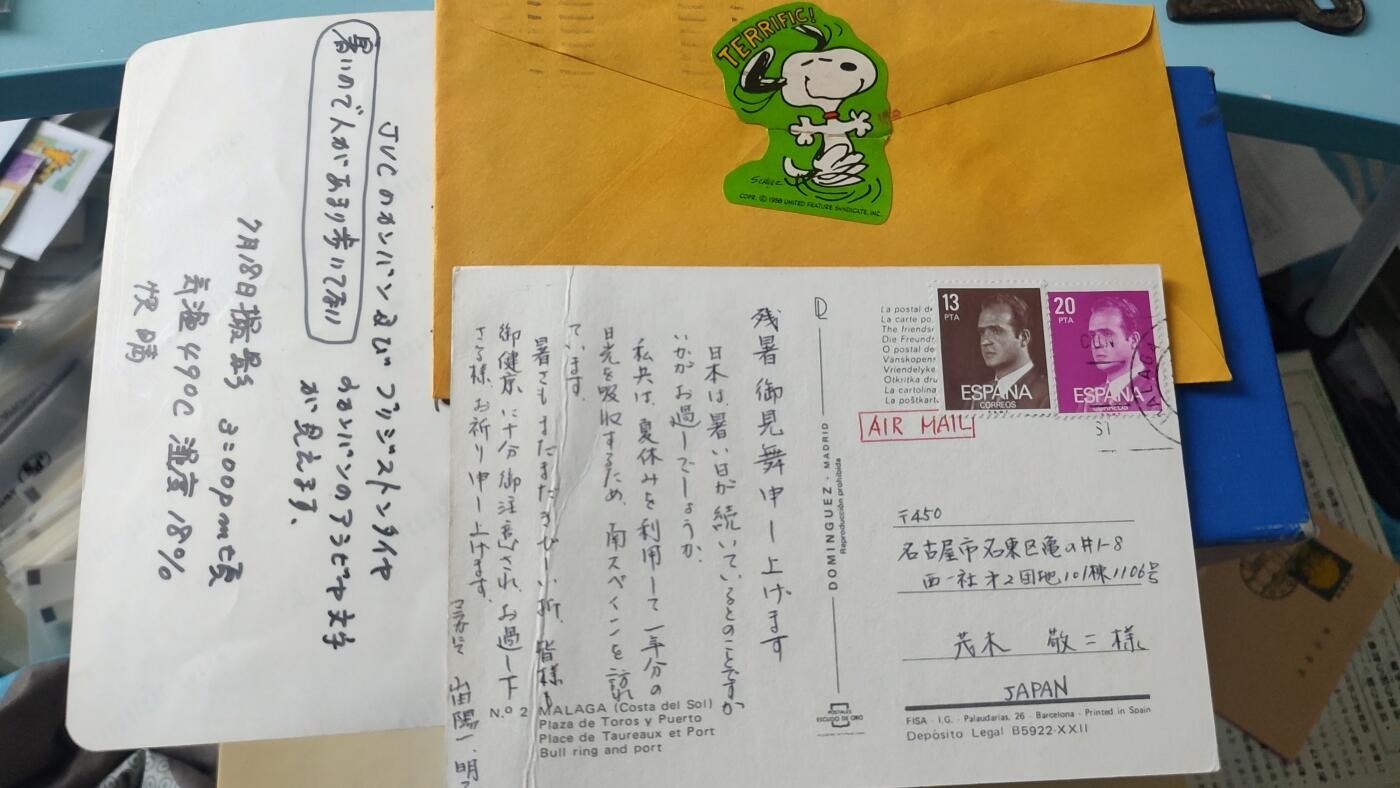 JVCのカンバン及び ブリジストンタイヤ
のカンバンのアラビヤ文字
が見えます、
暑いので人があまり歩いてない
7月18日撮影 3:00pm頃
気温 49℃ 湿度 18%
快晴
TERRIFIC!
SCHULZ
COPR. © 1958 UNITED FEATURE SYNDICATE, INC.
残暑御見舞申し上げます
日本は、暑い日が続いているとのことですが
いかがお過しでしょうか、
私共は、夏休みを利用して一年分の
日光を吸収するため、南スペインを訪れ
ています。
暑さもまだまだきびしい折、皆様
御健康に十分御注意され、お過し下
さる様、お祈り申し上げます。
マラガにて 山田陽一、明
N.º 2 MALAGA (Costa del Sol)
Plaza de Toros y Puerto
Place de Taureaux et Port
Bull ring and port
D
DOMINGUEZ - MADRID
Reproducción prohibida
POSTALES
ESCUDO DE ORO
La postal de
La carte po
The friends
Die Freund
O postal de
Vanskopen
Vriendelyke
Otkritka dru
La cartolina
La postkart
13
PTA
ESPAÑA
CORREOS
20
PTA
ESPAÑA
CORREOS
MALAGA
AIR MAIL
〒450
名古屋市名東区亀の井1-8
西一社第2団地101棟1106号
茂木 敬二様
JAPAN
FISA - I.G. - Palaudarias, 26 - Barcelona - Printed in Spain
Depósito Legal B5922-XXII